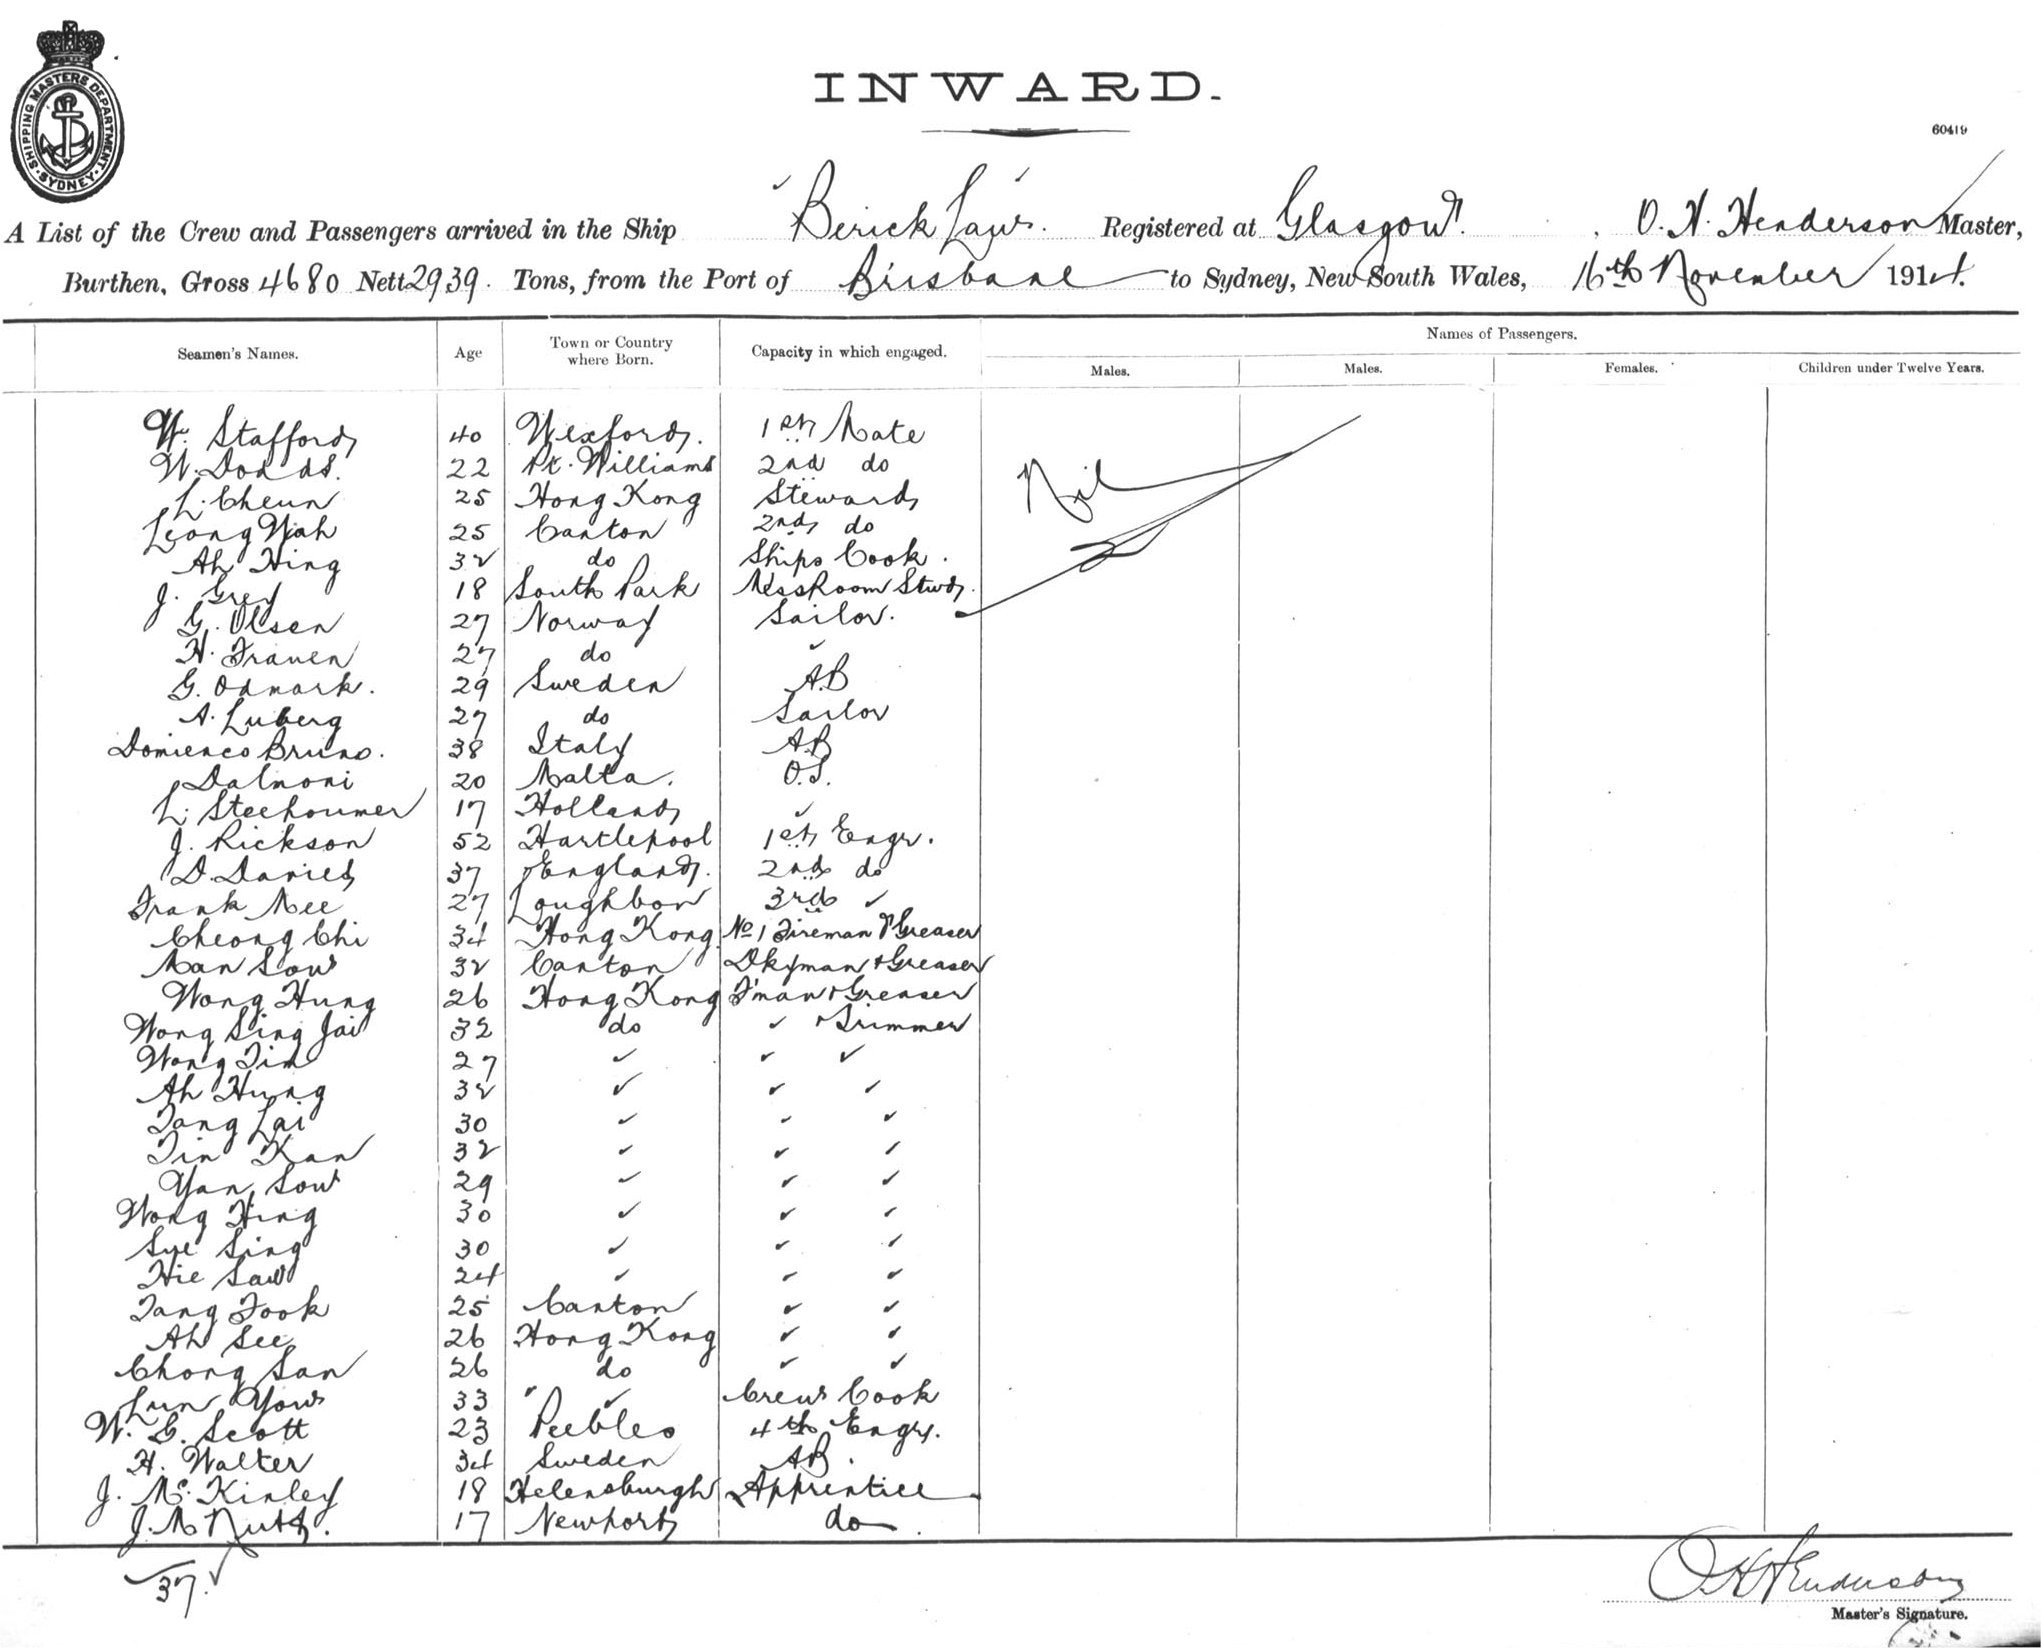 SHIPPING MASTERS DEPARTMENT · SYDNEY ·
INWARD.
60419
A List of the Crew and Passengers arrived in the Ship Berick Law. Registered at Glasgow. O. H. Henderson Master,
Burthen, Gross 4680 Nett 2939. Tons, from the Port of Brisbane to Sydney, New South Wales, 16th November 1914.
Seamen's Names. Age Town or Country where Born. Capacity in which engaged. Names of Passengers.
Males. Males. Females. Children under Twelve Years.
W. Stafford 40 Wexford. 1st Mate
W. Dodds. 22 Pt. Williams 2nd do
Nil
L. Cheun 25 Hong Kong Steward
Leong Wah 25 Canton 2nd do
Ah Hing 32 do Ships Cook.
J. Grey 18 South Park MessRoom Stwd.
G. Olsen 27 Norway Sailor.
H. Franen 27 do ✓
G. Odmark. 29 Sweden A.B
A. Luberg 27 do Sailor
Domienco Bruno. 38 Italy A.B
Dalmoni 20 Malta. O.S.
L. Steehoumer 17 Holland ✓
J. Rickson 52 Hartlepool 1st Engr.
D. Davies 37 England. 2nd do
Frank Mee 27 Loughbor 3rd ✓
Cheong Chi 34 Hong Kong No 1 Fireman & Greaser
Man Sow 32 Canton Dkyman & Greaser
Wong Hung 26 Hong Kong F'man & Greaser
Wong Sing Jai 32 do ✓ & Trimmer
Wong Tim 27 ✓ ✓ ✓
Ah Hung 32 ✓ ✓ ✓
Tang Lai 30 ✓ ✓ ✓
Tin Kan 32 ✓ ✓ ✓
Yan Sow 29 ✓ ✓ ✓
Wong Hing 30 ✓ ✓ ✓
Sye Sing 30 ✓ ✓ ✓
Hie Saw 24 ✓ ✓ ✓
Tang Fook 25 Canton ✓ ✓
Ah See 26 Hong Kong ✓ ✓
Chong San 26 do ✓ ✓
Lun Yow 33 " ✓ Crews Cook
W. G. Scott 23 Peebles 4th Engr.
H. Walter 34 Sweden AB.
J. McKinley 18 Helensburgh Apprentice
J. M Nutt. 17 Newport do.
37. ✓
O H Henderson
Master's Signature.